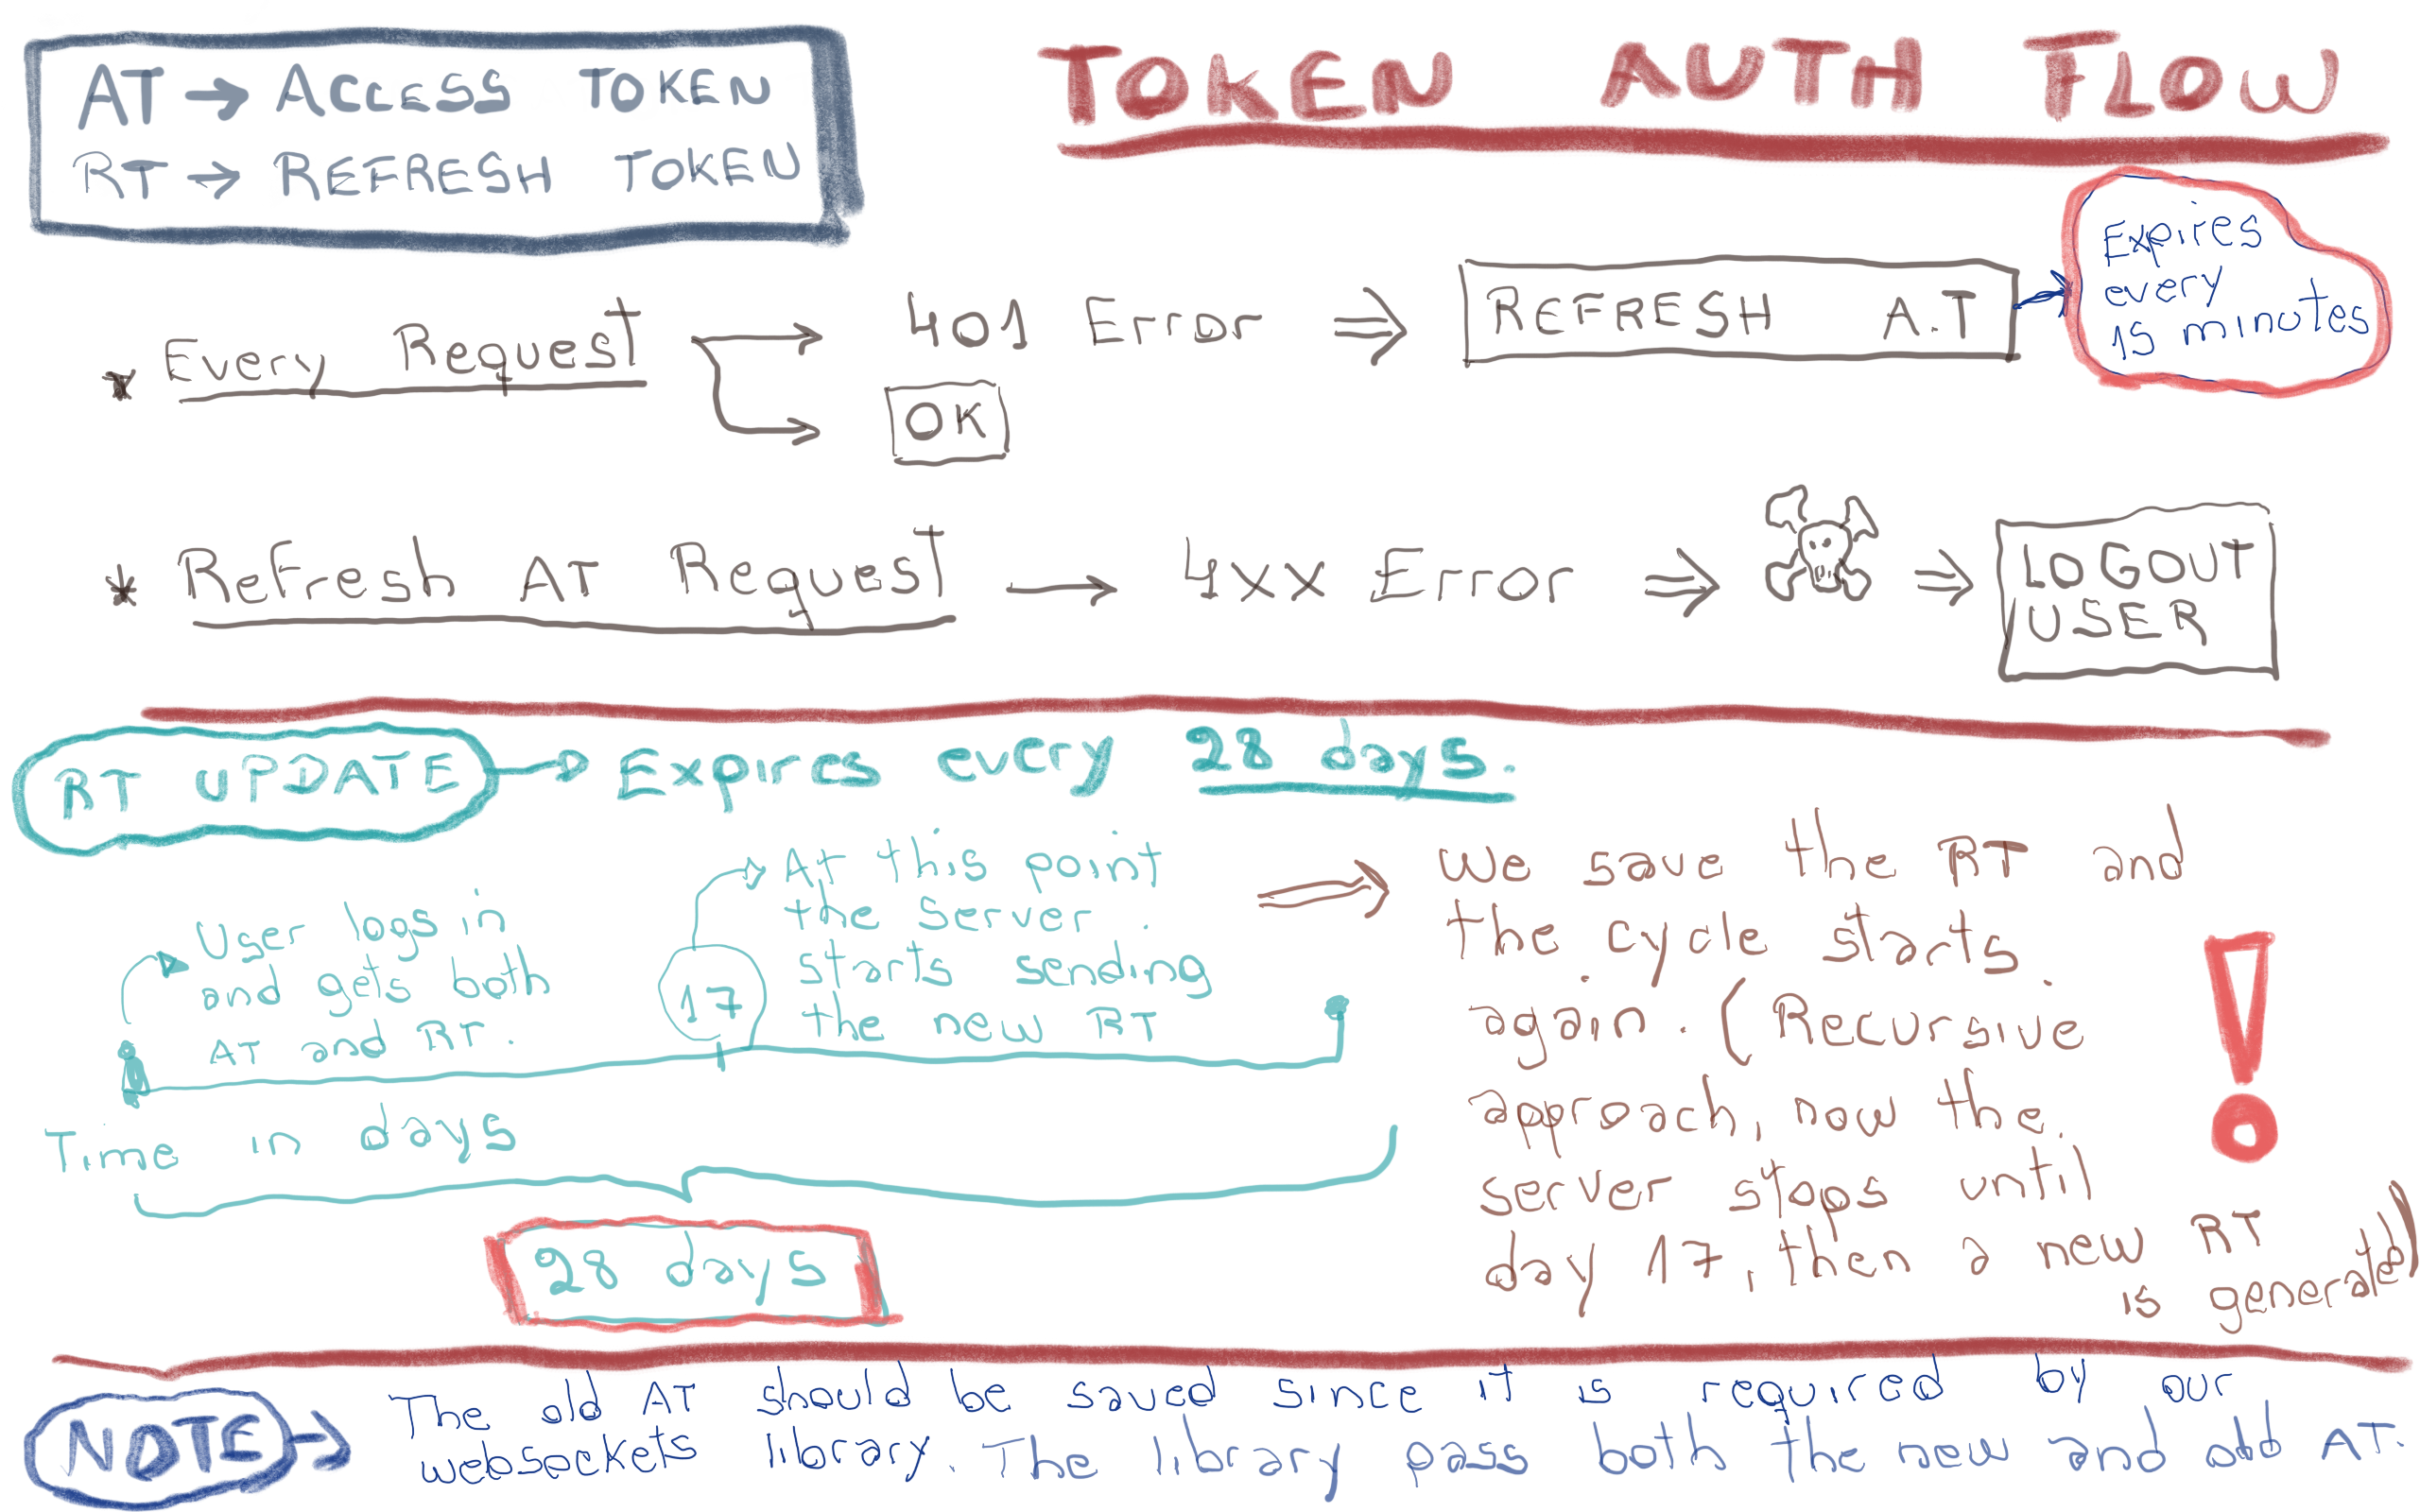 AT → ACCESS TOKEN
RT → REFRESH TOKEN
TOKEN AUTH FLOW
* Every Request
401 Error ⇒ REFRESH A.T
OK
Expires
every
15 minutes
* Refresh AT Request → 4XX Error ⇒ ⇒ LOGOUT
USER
RT UPDATE → Expires every 28 days.
User logs in
and gets both
AT and RT.
17
At this point
the server
starts sending
the new RT
Time in days
28 days
We save the RT and
the cycle starts
again. (Recursive
approach, now the
server stops until
day 17, then a new RT
is generated)
!
NOTE → The old AT should be saved since it is required by our
websockets library. The library pass both the new and old AT.